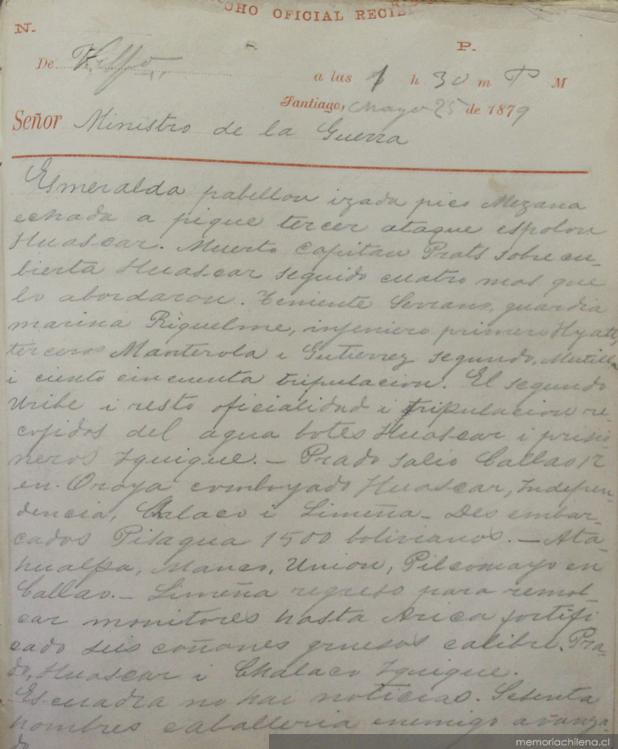 CHO OFICIAL RECI
N. P.
De Valpo. a las 1 h 30 m P M
Santiago, Mayo 25 de 1879
Señor Ministro de la Guerra
Esmeralda pabellon izada pico Mezana
echada a pique tercer ataque espolon
Huascar. Muerto Capitan Prats sobre cu-
bierta Huascar seguido cuatro mas que
lo abordaron. Teniente Serrano, guardia
marina Riquelme, injeniero primero Hyatt,
terceros Manterola i Gutierrez segundo, Mutilla
i ciento cincuenta tripulacion. El segundo
Uribe i resto oficialidad i tripulacion re-
cojidos del agua botes Huascar i prisio
neros Iquique. — Prado salio Callao 17
en Oroya comboyado Huascar, Indepen-
dencia, Chalaco i Limeña — Desembar-
cados Pisagua 1500 bolivianos. — Ata-
hualpa, Manco, Union, Pilcomayo en
Callao. — Limeña regreso para remol-
car monitores hasta Arica fortifi
cado seis cañones gruesos calibre. Pra-
do, Huascar i Chalaco Iquique.
Escuadra no hai noticias. Sesenta
hombres caballeria enemigo avanza-
do
memoriachilena.cl